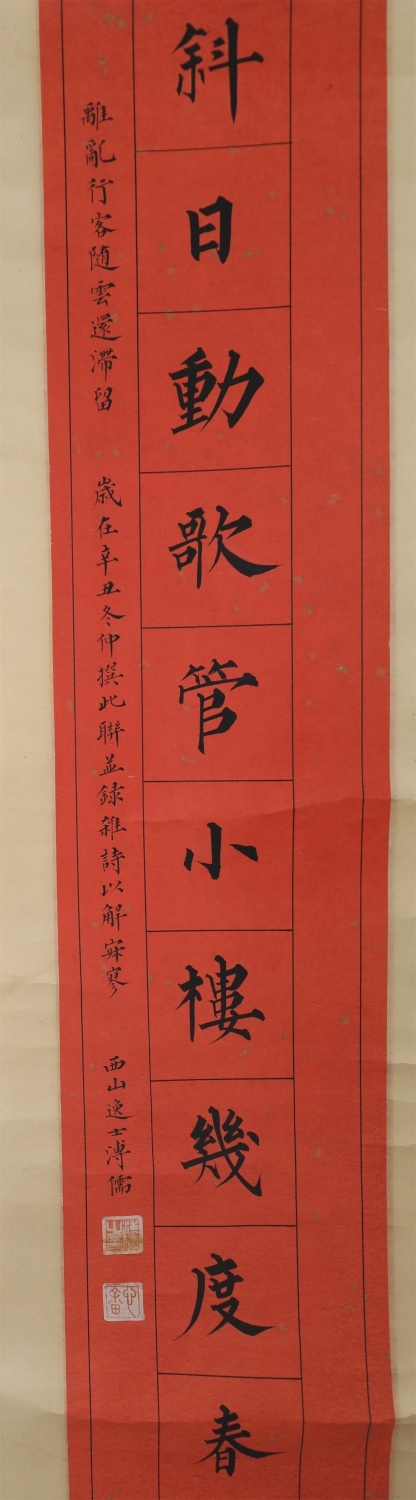 斜日動歌管小樓幾度春
離亂行客随雲還滯留 歲在辛丑冬仲撰此聯並録雜詩以解寂寥 西山逸士溥儒